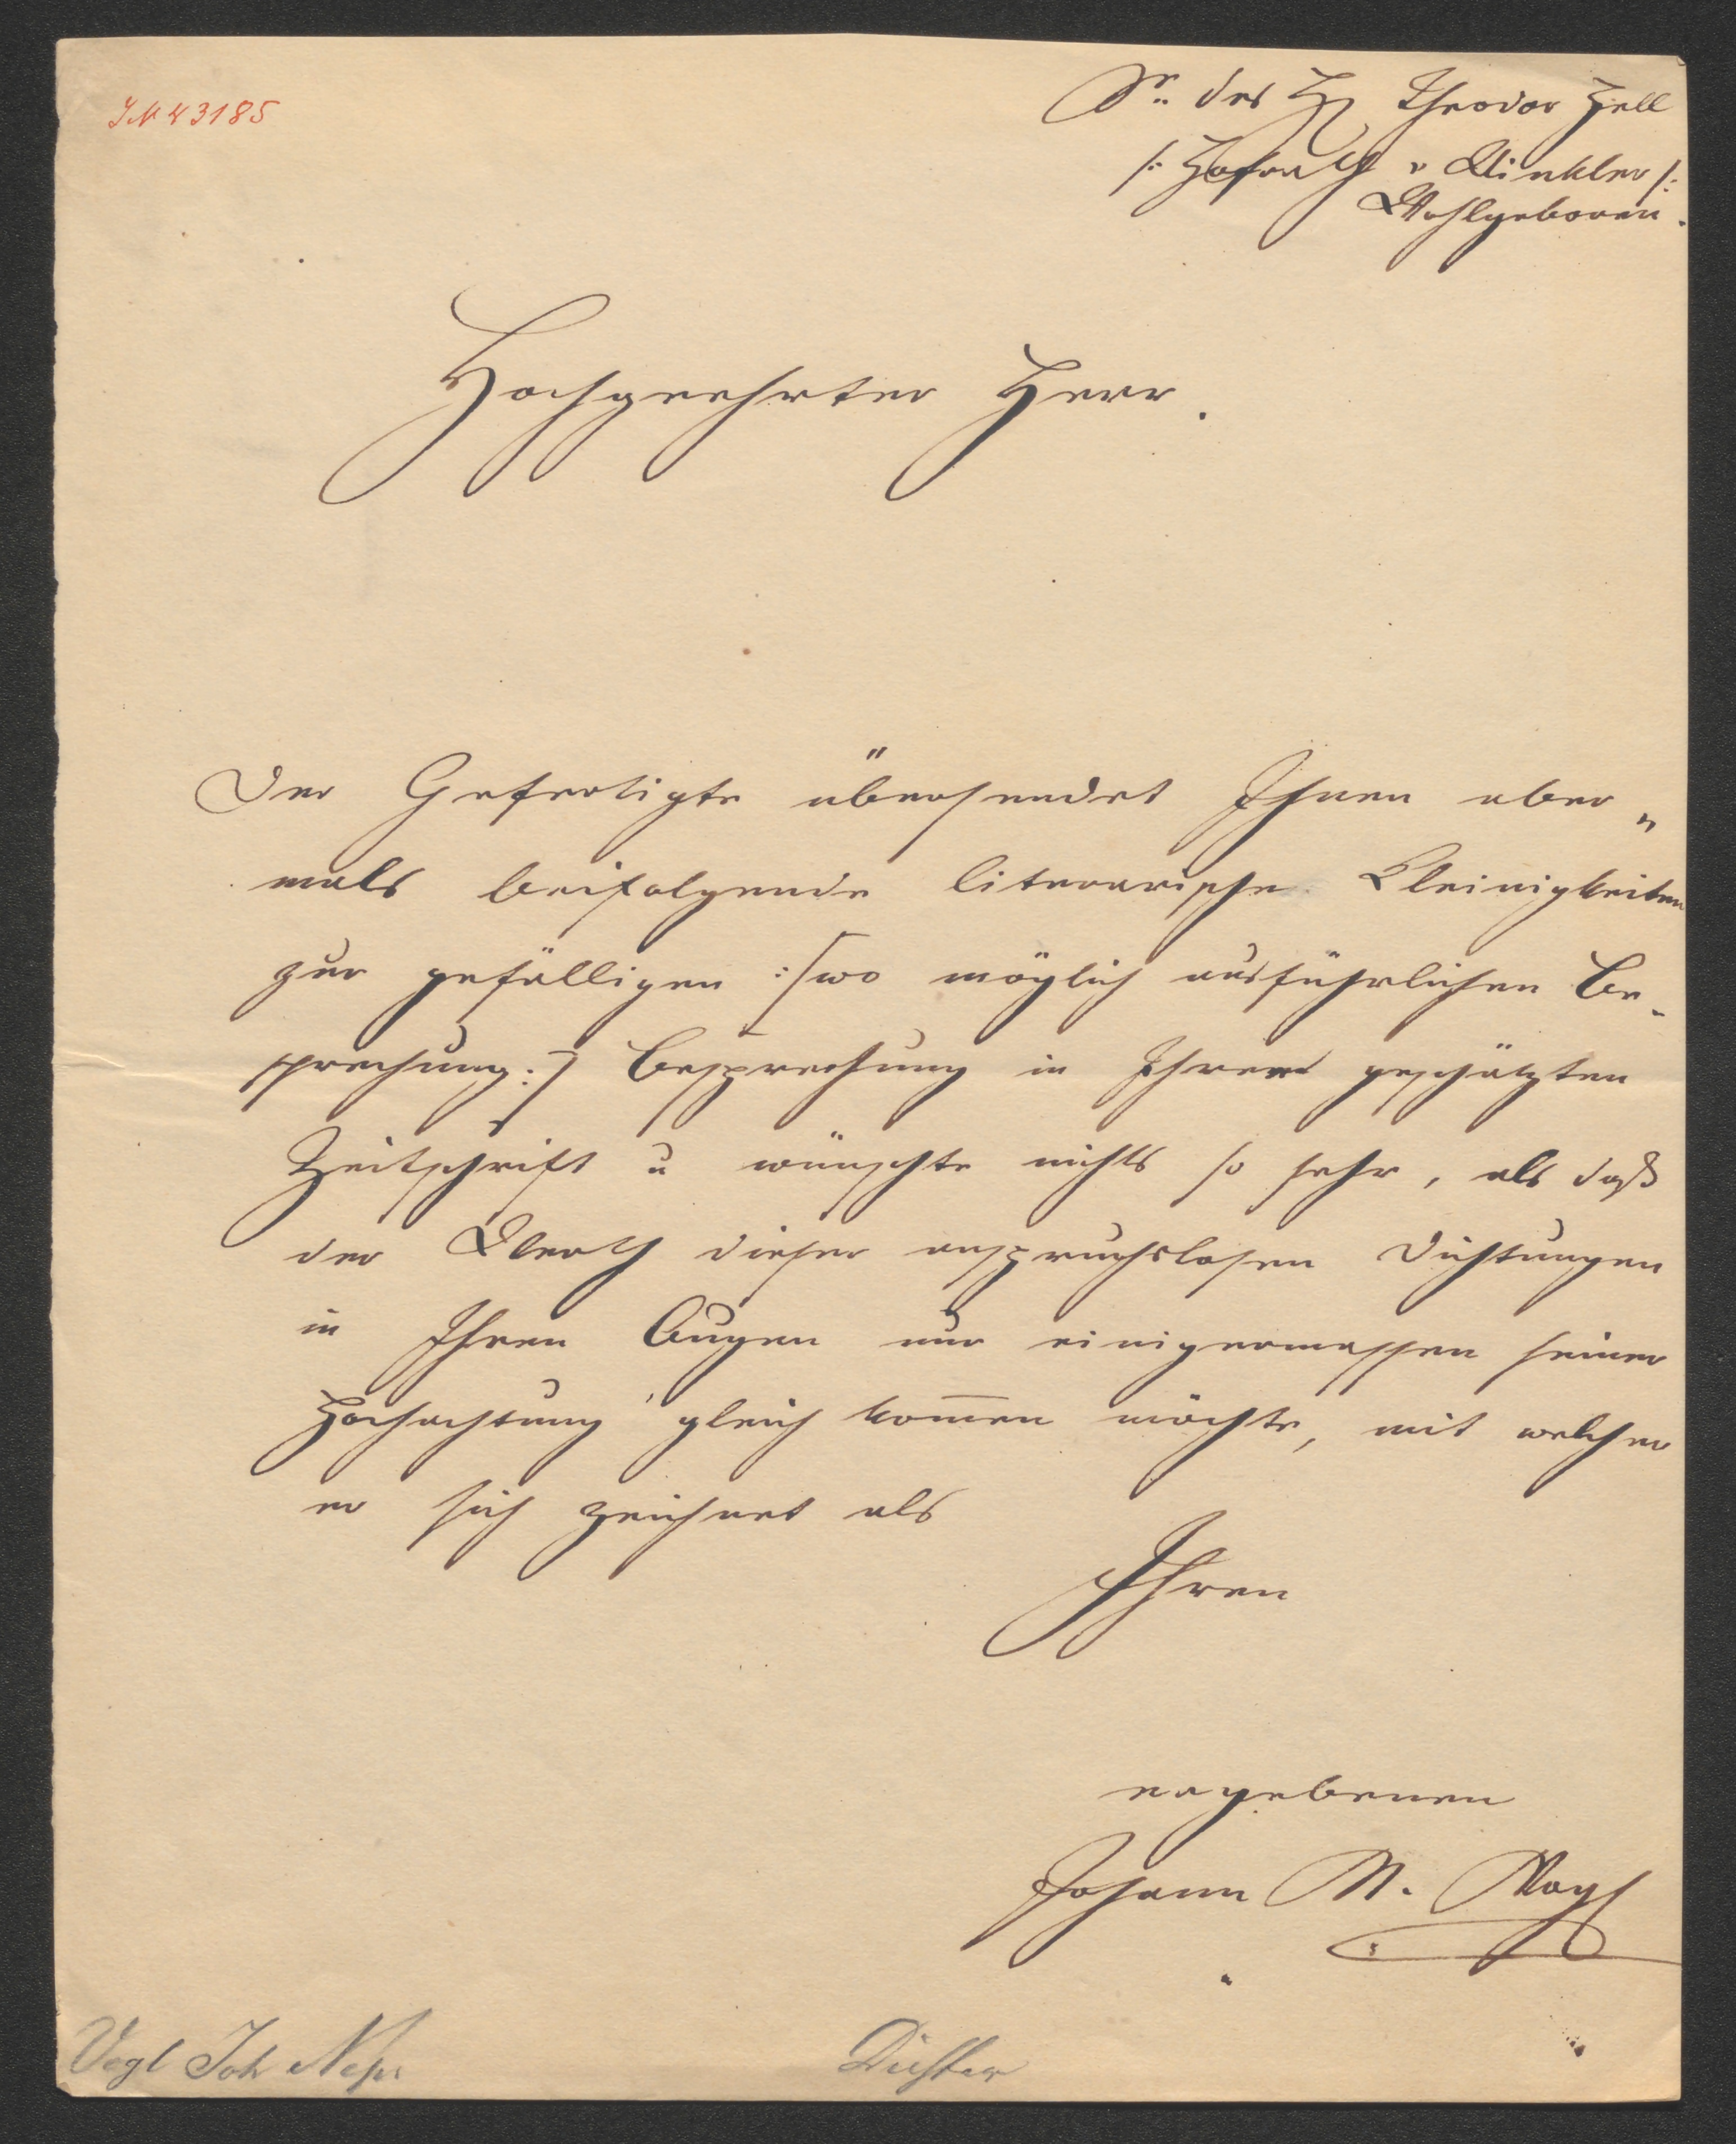 IN 43185
Sr. des H Theodor Hell
/: Hofrath v Winkler /:
Wohlgeboren.
Hochgeehrter Herr.
Der Gefertigte übersendet Ihnen aber„
mals beifolgende literarische Kleinigkeiten
zur gefälligen :/wo möglich ausführlichen Be-
sprechung:/ Besprechung in Ihrer geschätzten
Zeitschrift u wünschte nichts so sehr, als daß
der Werth dieser anspruchslosen Dichtungen
in Ihren Augen nur einigermassen seiner
Hochachtung gleich kom̄en möchte, mit welcher
er sich zeichnet als
Ihren
ergebenen
Johann N. Vogl
Vogl Joh Nep.
Dichter